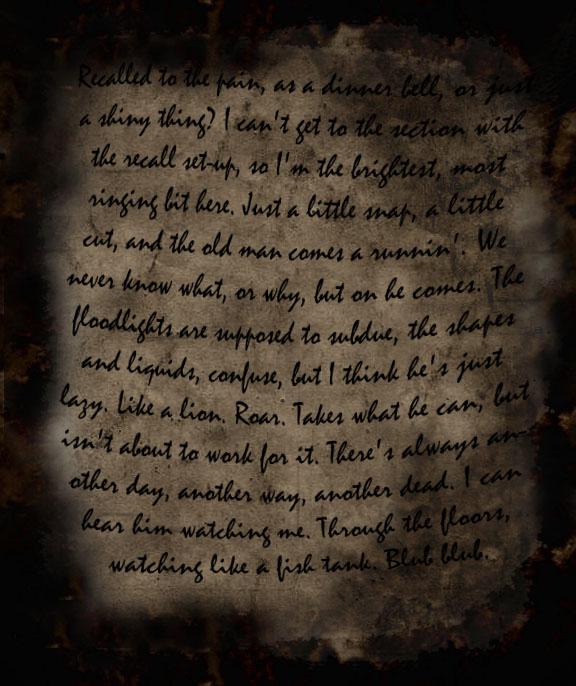 Recalled to the pain, as a dinner bell, or just
a shiny thing? I can't get to the section with
the recall set-up, so I'm the brightest, most
ringing bit here. Just a little snap, a little
cut, and the old man comes a runnin'. We
never know what, or why, but on he comes. The
floodlights are supposed to subdue, the shapes
and liquids, confuse, but I think he's just
lazy. Like a lion. Roar. Takes what he can, but
isn't about to work for it. There's always an-
other day, another way, another dead. I can
hear him watching me. Through the floors,
watching like a fish tank. Blub blub.